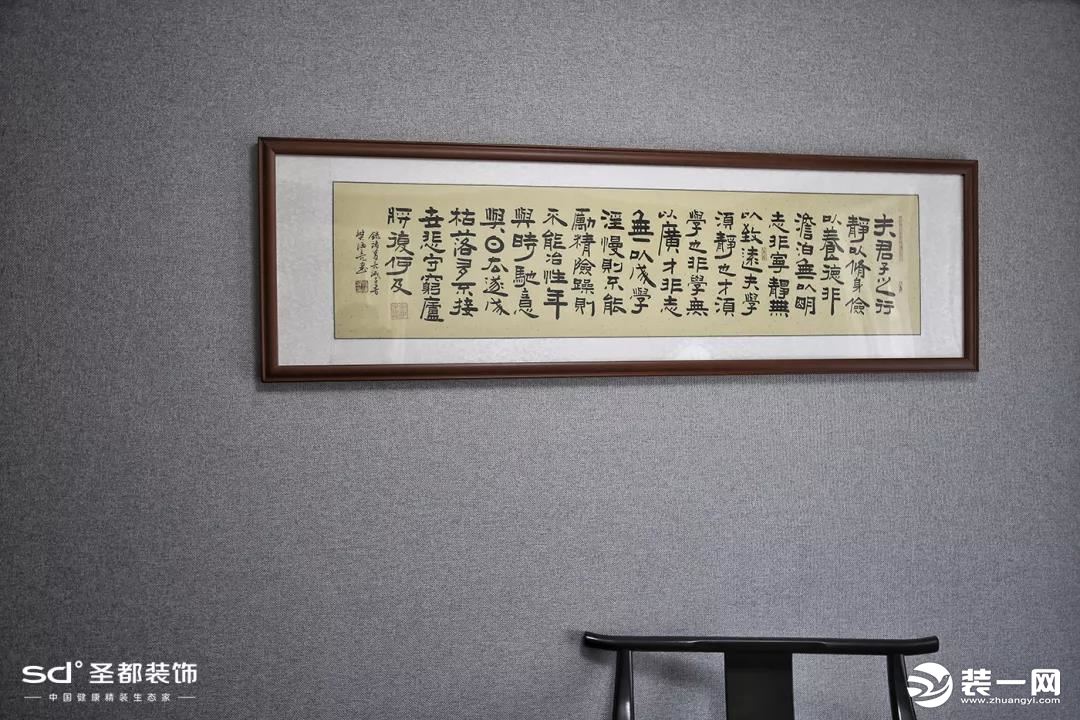 夫君子之行
靜以脩身儉
以養德非
澹泊無以明
志非寧靜無
以致遠夫學
須靜也才須
學也非學無
以廣才非志
無以成學
淫慢則不能
勵精險躁則
不能冶性年
與時馳意
與日去遂成
枯落多不接
世悲守窮廬
將復何及
sd°圣都装饰
中国健康精装生态家
装一网
www.zhuangyi.com